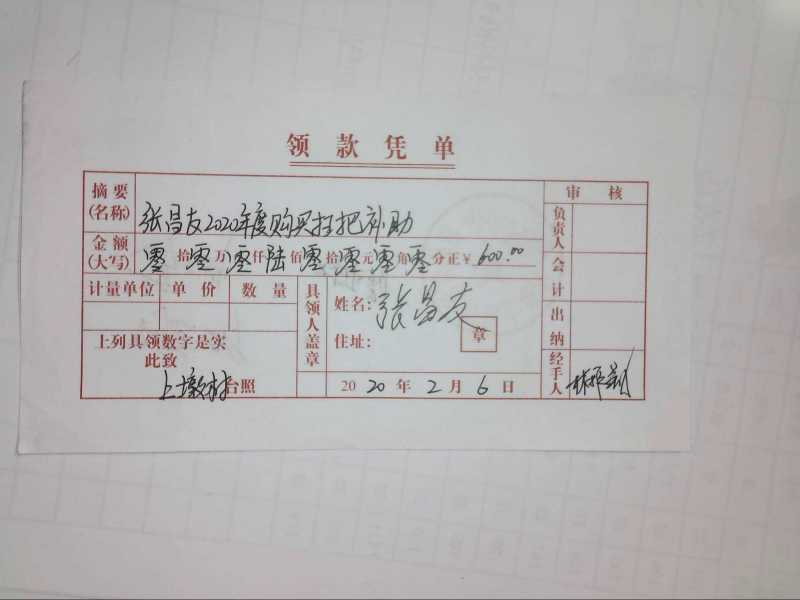 领款凭单
摘要(名称) 张昌友2020年度购买扫把补助
审核
金额(大写) 零拾零万零仟陆佰零拾零元零角零分正¥600.00
负责人
会计
计量单位 单价 数量
具领人盖章
姓名: 张昌友
住址:
章
出纳
上列具领数字是实
此致
上墩村台照
2020年2月6日
经手人 林